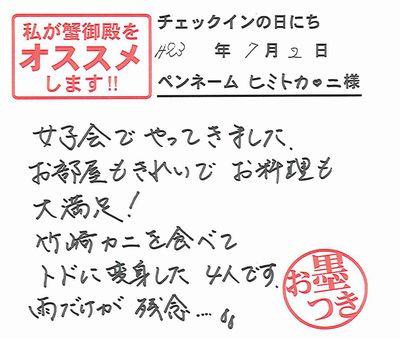 私が蟹御殿を
オススメ
します!!
チェックインの日にち
H23 年 7月 2 日
ペンネーム ヒミトカ・ニ様
女子会で やってきました.
お部屋もきれいで お料理も
大満足!
竹崎カニを食べて
トドに変身した 4人です.
雨だけが 残念....
お墨つき